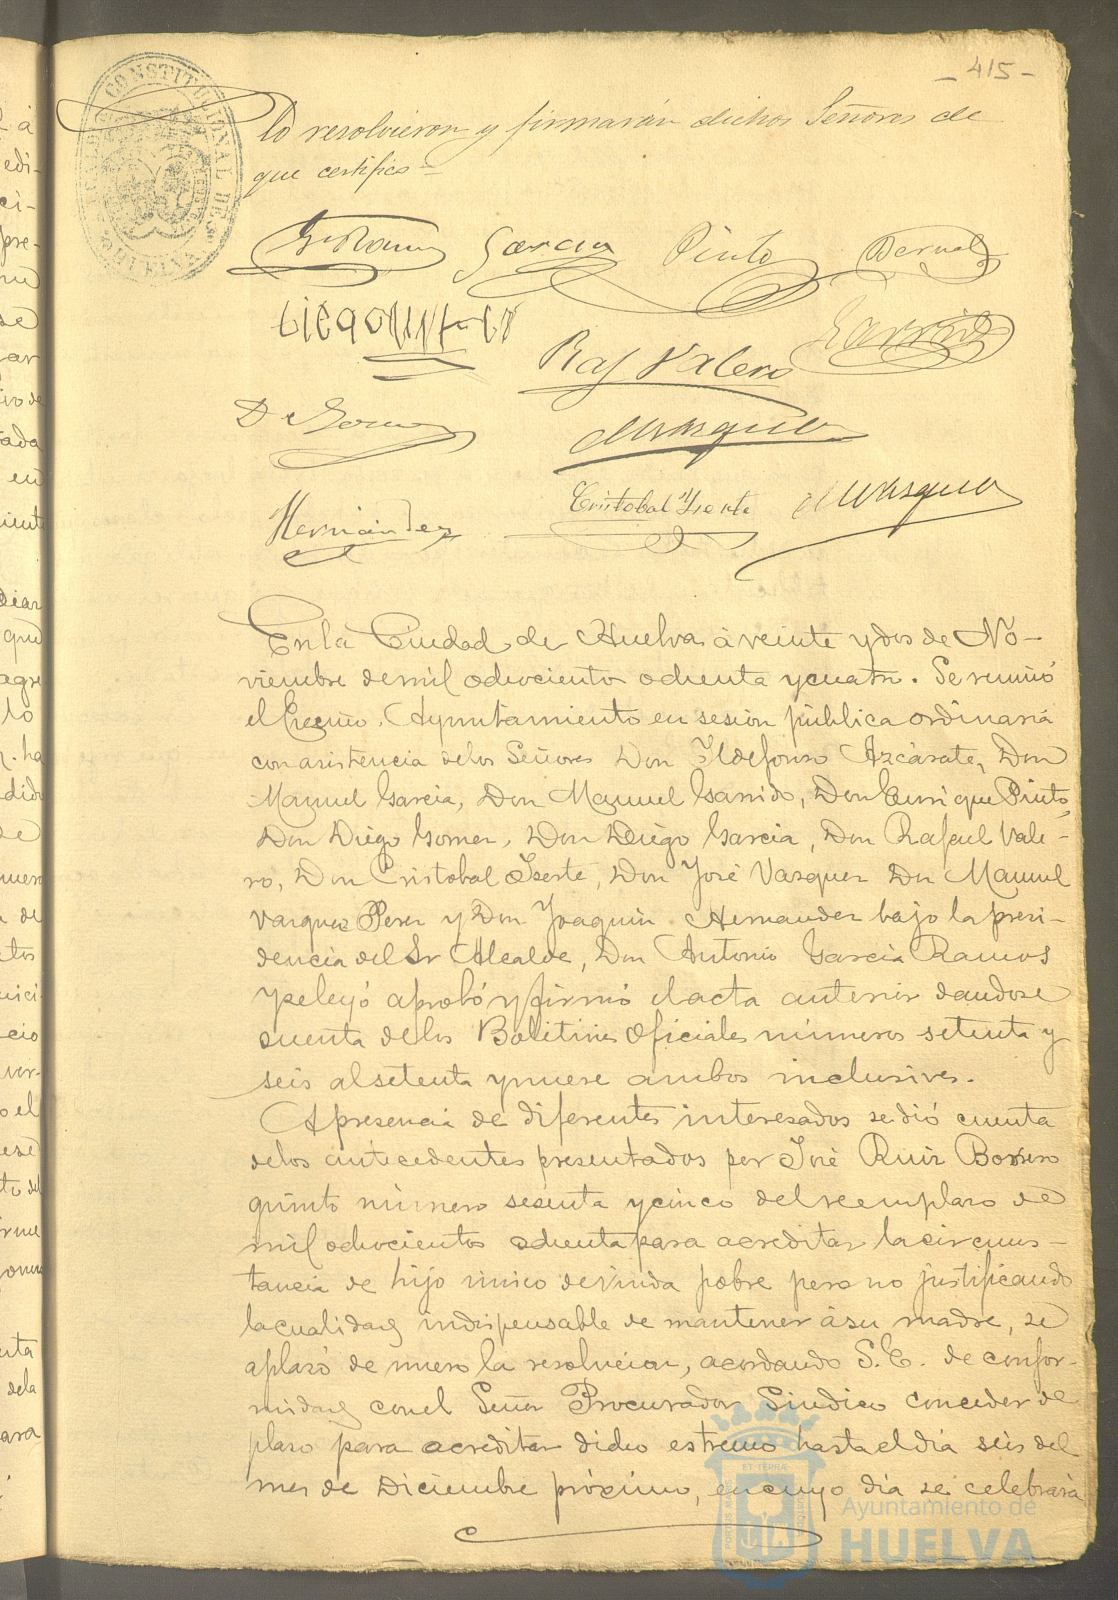 - 415 -
lo resolvieron y firmarán dichos Señores de
que certifico
García Pinto Bernal
Garrido
Raf Valero
D Gomez
Vazquez
Hernández Cristobal Yserte Vasquez
En la Ciudad de Huelva á veinte y dos de No-
viembre de mil ochociento ochenta y cuatro. Se reunió
el Excmo. Ayuntamiento en sesión pública ordinaria
con asistencia de los Señores Don Ildefonso Azcárate, Don
Manuel García, Don Manuel Garrido, Don Enrique Pinto,
Don Diego Gomez, Don Diego García, Don Rafael Vale-
ro, Don Cristobal Iserte, Don José Vazquez Don Manuel
Vazquez Perez y Don Joaquín Hernandez bajo la presi-
dencia del Sr Alcalde, Don Antonio García Ramos
y se leyó aprobó y firmó el acta anterior dandose
cuenta de los Boletines oficiales números setenta y
seis al setenta y nueve ambos inclusives.
A presencia de diferentes interesados se dió cuenta
de los antecedentes presentados por José Ruiz Borrero
quinto número sesenta y cinco del reemplazo de
mil ochocientos ochenta para acreditar la circuns-
tancia de hijo único de viuda pobre pero no justificando
la cualidad indispensable de mantener á su madre, se
aplazó de nuevo la resolución, acordando S.E. de confor-
midad con el Señor Procurador Síndico conceder de
plazo para acreditar dicho estremo hasta el día seis del
mes de Diciembre próximo, en cuyo día se celebrará
Ayuntamiento de
HUELVA